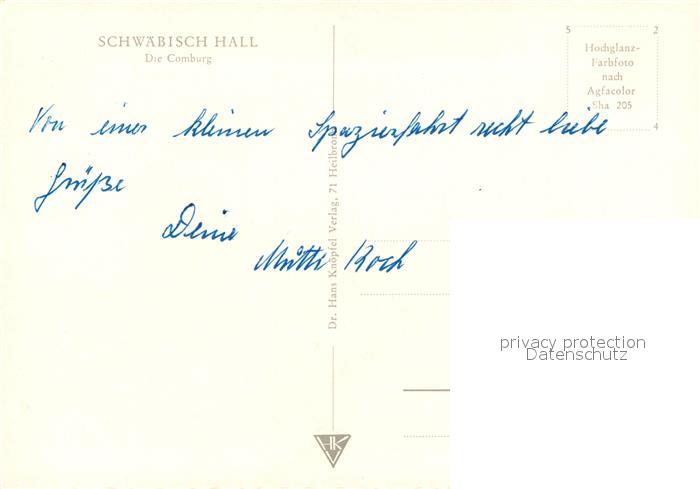 SCHWÄBISCH HALL
Die Comburg
5 2
Hochglanz-
Farbfoto
nach
Agfacolor
Sha 205
4
Von einer kleinen Spazierfahrt recht liebe
Grüße
Deine
Mutte Koch
Dr. Hans Knöpfel Verlag, 71 Heilbronn
HK
privacy protection
Datenschutz